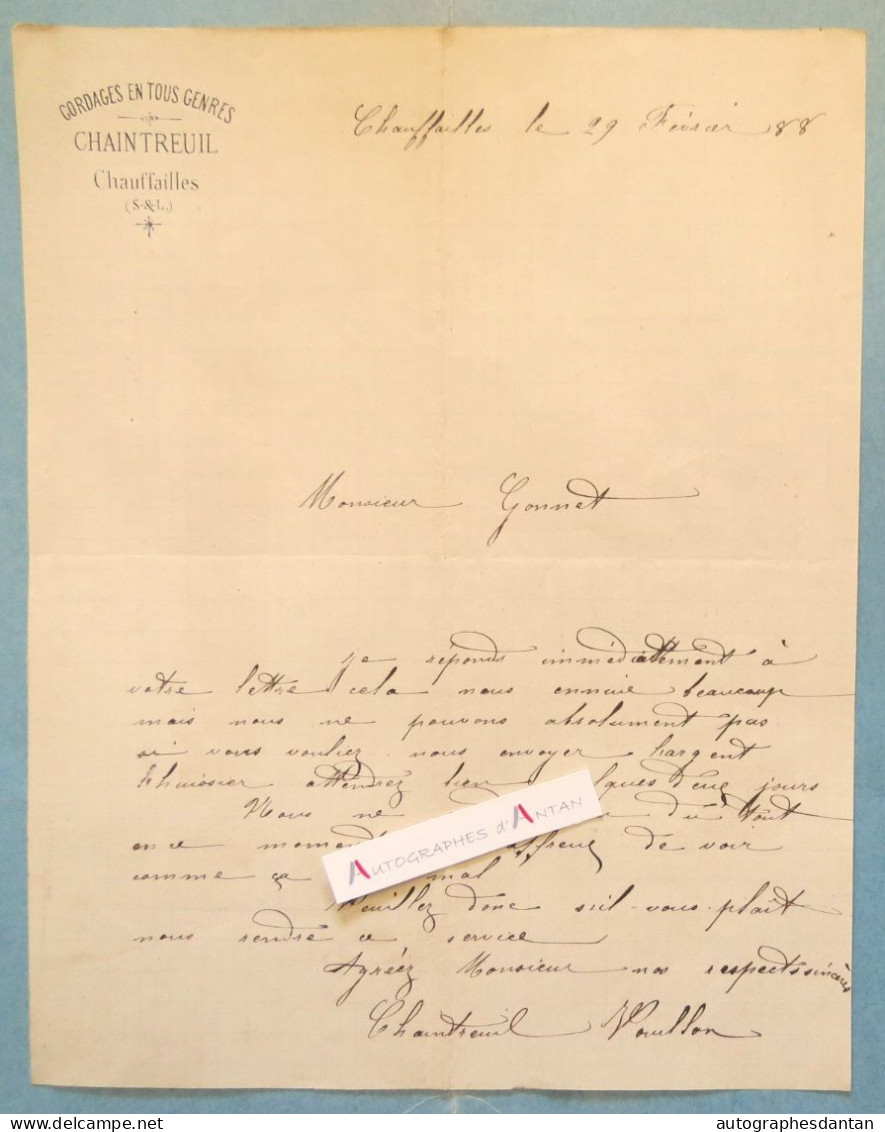 CORDAGES EN TOUS GENRES
CHAINTREUIL
Chauffailles
(S-&-L.)
Chauffailles le 29 Février 88
Monsieur Gonnet
je réponds immédiattement à
votre lettre cela nous ennuie beaucoup
mais nous ne pouvons absolument pas
si vous vouliez nous envoyer largent
lhuissier attendrez bien quelques deux jours
Nous ne du tout
en ce moment affreux de voir
comme ça mal
Veuillez donc sil-vous-plaît
nous rendre ce service
Agréez Monsieur nos respects sincères
Chaintreuil Vouillon
AUTOGRAPHES d'ANTAN
autographesdantan